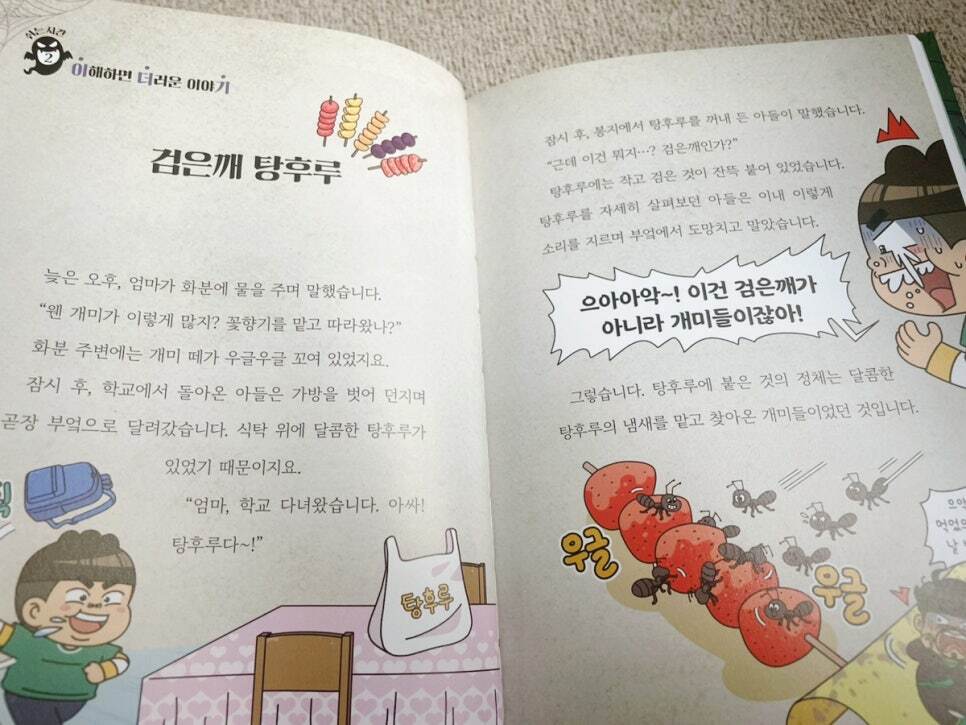 쉬는시간
2
이해하면 더러운 이야기
검은깨 탕후루
늦은 오후, 엄마가 화분에 물을 주며 말했습니다.
“웬 개미가 이렇게 많지? 꽃향기를 맡고 따라왔나?”
화분 주변에는 개미 떼가 우글우글 꼬여 있었지요.
잠시 후, 학교에서 돌아온 아들은 가방을 벗어 던지며
곧장 부엌으로 달려갔습니다. 식탁 위에 달콤한 탕후루가
있었기 때문이지요.
“엄마, 학교 다녀왔습니다. 아싸!
탕후루다~!”
탕후루
잠시 후, 봉지에서 탕후루를 꺼내 든 아들이 말했습니다.
“근데 이건 뭐지…? 검은깨인가?”
탕후루에는 작고 검은 것이 잔뜩 붙어 있었습니다.
탕후루를 자세히 살펴보던 아들은 이내 이렇게
소리를 지르며 부엌에서 도망치고 말았습니다.
으아아악~! 이건 검은깨가
아니라 개미들이잖아!
그렇습니다. 탕후루에 붙은 것의 정체는 달콤한
탕후루의 냄새를 맡고 찾아온 개미들이었던 것입니다.
우글
우글